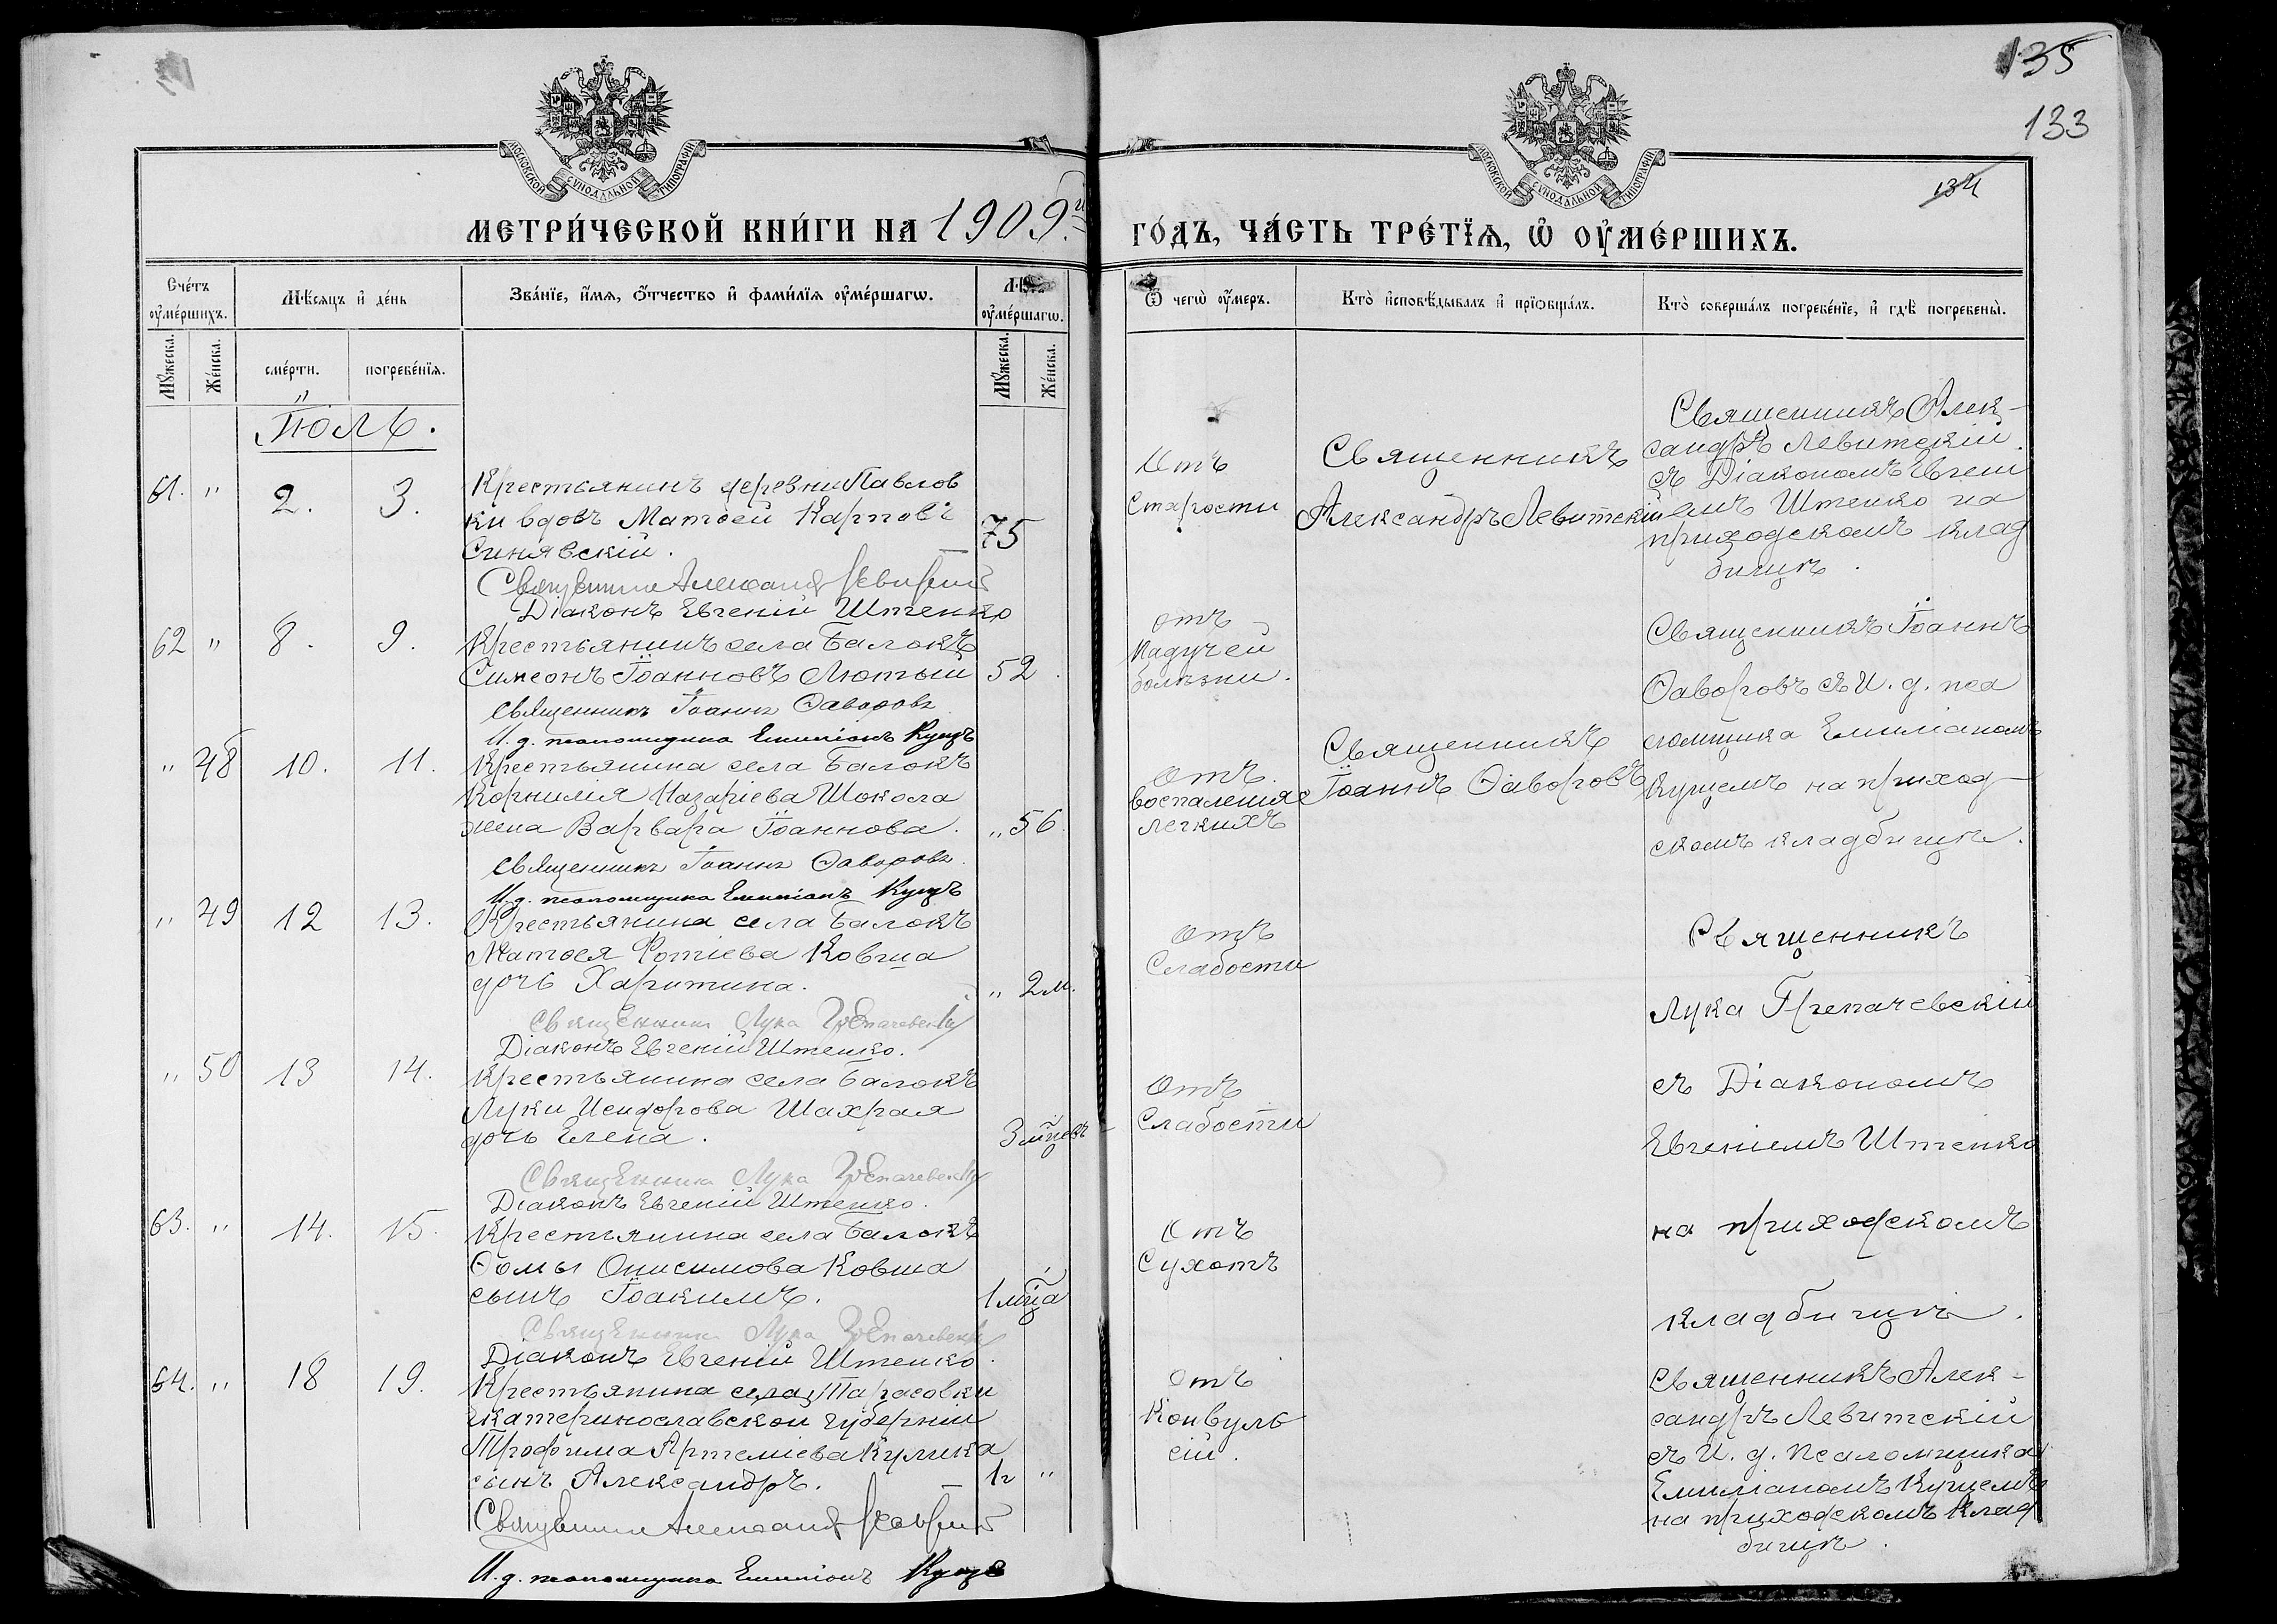 135
133
134
МОСКОВСКОЙ СУНОДАЛЬНОЙ ТИПОГРАФІИ
МОСКОВСКОЙ СУНОДАЛЬНОЙ ТИПОГРАФІИ
МЕТРИ́ЧЕСКОЙ КНИ́ГИ НА 1909й
ГО́ДЪ, ЧА́СТЬ ТРЕ́ТЇѦ, Ѡ҆ ОУ҆МЕ́РШИХЪ.
Сче́тъ оу҆ме́ршихъ.
Мѣ́сяцъ и҆ де́нь
Зва́нїе, и҆́мя, ѻ҆́тчество и҆ фами́лїя оу҆ме́ршагѡ.
Лѣта оу҆ме́ршагѡ.
Ѿ чегѡ̀ оу҆́меръ.
Кто̀ и҆сповѣ́дывалъ и҆ прїѻбща́лъ.
Кто̀ соверша́лъ погребе́нїе, и҆ гдѣ̀ погребены̀.
Мꙋ́жеска.
Же́нска.
сме́рти.
погребе́нїя.
Мꙋ́жеска.
Же́нска.
Іюль.
61. " 2. 3.
Крестьянинъ деревни Павлов
ки вдовъ Матѳей Карповъ
Синявскій. 75
Священникъ Александръ Левитскій
Діаконъ Евгеній Штепко
Отъ
Старости
Священникъ
Александръ Левитскій
Священникъ Алек-
сандръ Левитскій
съ Діакономъ Евгені
емъ Штепко на
приходскомъ клад
бищѣ.
62 " 8. 9.
Крестьянинъ села Балокъ
Симеонъ Іоанновъ Лютый 52.
Священникъ Іоаннъ Ѳаворовъ
И. д. псаломщика Емиліанъ Куцъ
отъ
Падучей
болѣзни.
Священникъ Іоаннъ
Ѳаворовъ съ И. д. пса
ломщика Емиліаномъ
Куцемъ на приход-
скомъ кладбищѣ.
" 48 10. 11.
Крестьянина села Балокъ
Корнилія Назаріева Шокола
жена Варвара Іоаннова. " 56
Священникъ Іоаннъ Ѳаворовъ.
И. д. псаломщика Емиліанъ Куцъ
Отъ
воспаленія
легкихъ
Священникъ
Іоаннъ Ѳаворовъ
" 49 12 13.
Крестьянина села Балокъ
Матѳея Фотіева Ковша
дочь Харитина. " 2 м.
Священникъ Лука Трепачевскій
Діаконъ Евгеній Штепко.
Отъ
Слабости
Священникъ
Лука Трепачевскій
съ Діакономъ
Евгеніемъ Штепко
на приходскомъ
кладбищѣ.
" 50 13 14.
Крестьянина села Балокъ
Луки Исидорова Шахрая
дочь Елена. 3 мцевъ
Священникъ Лука Трепачевскій
Діаконъ Евгеній Штепко.
Отъ
Слабости
63. " 14. 15.
Крестьянина села Балокъ
Ѳомы Онисимова Ковша
сынъ Іоакимъ. 1 мца
Священникъ Лука Трепачевскій
Діаконъ Евгеній Штепко.
Отъ
Сухотъ
64. " 18 19.
Крестьянина села Тарасовки
Екатеринославской губерніи
Трофима Артеміева Кулика
сынъ Александръ. 1 г "
Священникъ Александръ Левитскій
И. д. псаломщика Емиліанъ Куцъ
отъ
Конвуль
сій.
Священникъ Алек-
сандръ Левитскій
съ И. д. Псаломщика
Емиліаномъ Куцемъ
на приходскомъ клад
бищѣ.